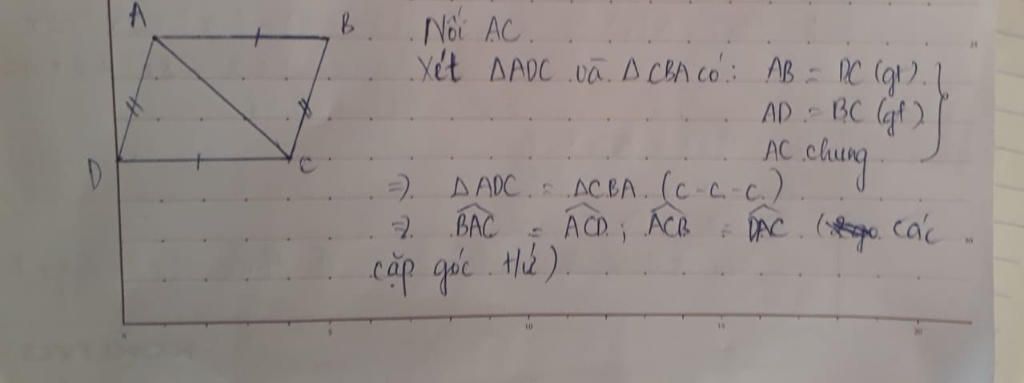 A
B
D
C
Nối AC
Xét ΔADC và ΔCBA có: AB = DC (gt)
AD = BC (gt)
AC chung
=> ΔADC = ΔCBA (c-c-c)
=> BAC = ACD; ACB = DAC (các
cặp góc t/ứ)
5 10 15 20